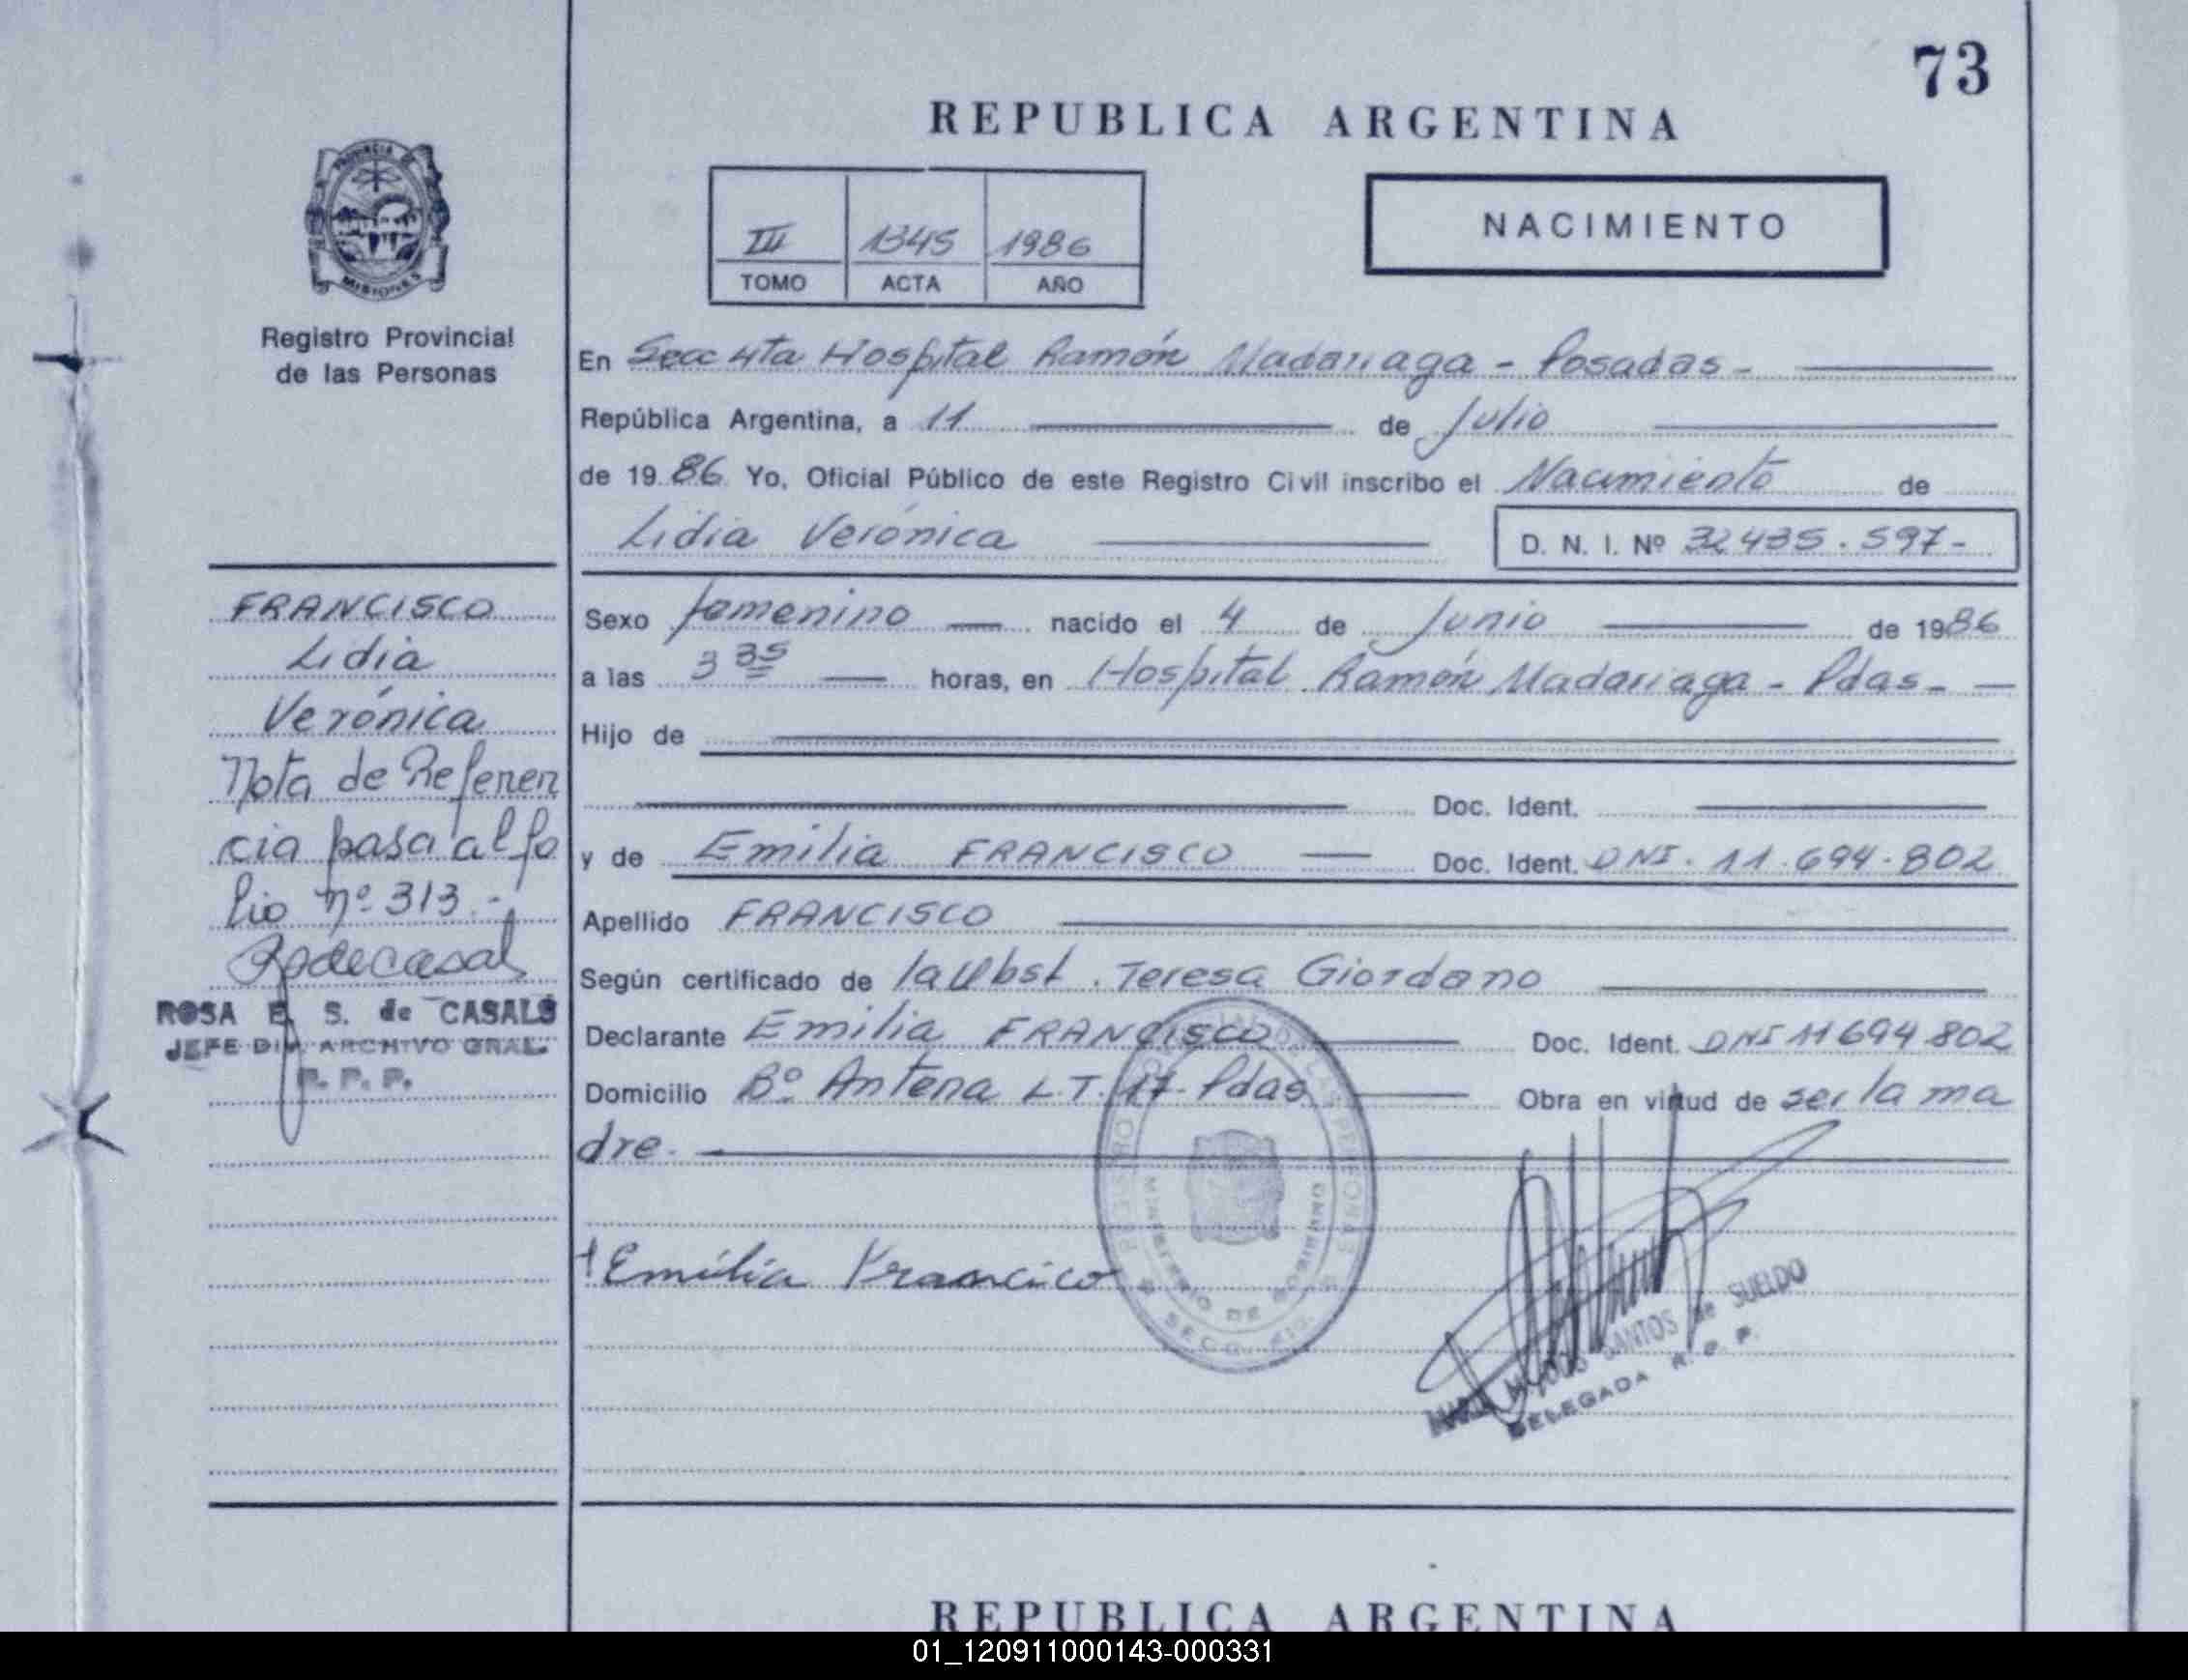 73
REPUBLICA ARGENTINA
PROVINCIA DE
MISIONES
Registro Provincial
de las Personas
III 1345 1986
TOMO ACTA AÑO
NACIMIENTO
En Secc 4ta Hospital Ramón Madariaga - Posadas -
República Argentina, a 11 de Julio
de 1986 Yo, Oficial Público de este Registro Civil inscribo el Nacimiento de
Lidia Verónica D. N. I. Nº 32.435.597-
FRANCISCO
Lidia
Verónica
Nota de Referen
cia pasa al fo
lio nº 313.-
ROSA E. S. de CASALS
JEFE DIV. ARCHIVO GRAL.
R. P. P.
Sexo femenino nacido el 4 de Junio de 1986
a las 3 35 horas, en Hospital Ramón Madariaga - Pdas-
Hijo de
Doc. Ident.
y de Emilia FRANCISCO Doc. Ident. DNI. 11.694.802
Apellido FRANCISCO
Según certificado de la Obst. Teresa Giordano
Declarante Emilia FRANCISCO Doc. Ident. DNI 11694802
Domicilio Bº Antena LT. 17 Pdas Obra en virtud de ser la ma
dre.
Emilia Francico
MINISTERIO DE GOBIERNO
SANTOS de SUELDO
DELEGADA R. P. P.
REPUBLICA ARGENTINA
01_120911000143-000331